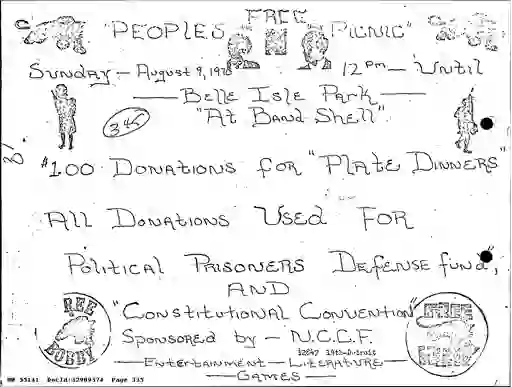 FREE
"PEOPLES PICNIC"
SUNDAY — AUGUST 9, 1970 12 PM — UNTIL
BELLE ISLE PARK
345 "AT BAND SHELL"
$1.00 DONATIONS FOR "PLATE DINNERS"
ALL DONATIONS USED FOR
POLITICAL PRISONERS DEFENSE FUND",
AND
"CONSTITUTIONAL CONVENTION"
FREE BOBBY
SPONSORED by — N.C.C.F.
12647 14th-Detroit
— ENTERTAINMENT — LITERATURE —
— GAMES —
FREE
HW 55141 DocId:32989574 Page 335